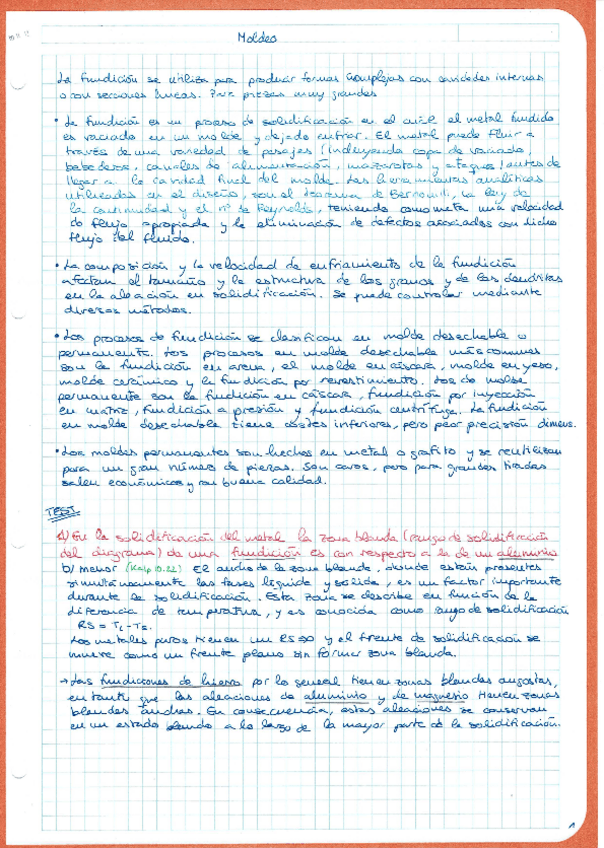 Moldeo
La fundición se utiliza para producir formas complejas con cavidades internas
o con secciones huecas. Para piezas muy grandes
• La fundición es un proceso de solidificación en el cual el metal fundido
es vaciado en un molde y dejado enfriar. El metal puede fluir a
través de una variedad de pasajes (incluyendo copa de vaciado,
bebederos, canales de alimentación, mazarotas y ataques) antes de
llegar a la cavidad final del molde. Las herramientas analíticas
utilizadas en el diseño, son el teorema de Bernouilli, la ley de
la continuidad y el nº de Reynolds, teniendo como meta una velocidad
de flujo apropiada y la eliminación de defectos asociados con dicho
flujo del fluido.
• La composición y la velocidad de enfriamiento de la fundición
afectan el tamaño y la estructura de los granos y de las dendritas
en la aleación en solidificación. Se puede controlar mediante
diversos métodos.
• Los procesos de fundición se clasifican en molde desechable o
permanente. Los procesos en molde desechable más comunes
son la fundición en arena, el molde en cáscara, molde en yeso,
molde cerámico y la fundición por revestimiento. Los de molde
permanente son la fundición en cáscara, fundición por inyección
en matriz, fundición a presión y fundición centrífuga. La fundición
en molde desechable tiene costes inferiores, pero peor precisión dimens.
• Los moldes permanentes son hechos en metal o grafito y se reutilizan
para un gran número de piezas. Son caros, pero para grandes tiradas
salen económicos y con buena calidad.
TEST
1) En la solidificación del metal la zona blanda (rango de solidificación
del diagrama) de una fundición es con respecto a la de un aluminio
b) menor (Kalp 10.22) El ancho de la zona blanda, donde están presentes
simultáneamente las fases líquida y sólida, es un factor importante
durante la solidificación. Esta zona se describe en función de la
diferencia de temperatura, y es conocida como rango de solidificación
RS = TL - TS.
Los metales puros tienen un RS≈0 y el frente de solidificación se
mueve como un frente plano sin formar zona blanda.
→ Las fundiciones de hierro por lo general tienen zonas blandas angostas,
en tanto que las aleaciones de aluminio y de magnesio tienen zonas
blandas anchas. En consecuencia, estas aleaciones se conservan
en un estado blando a lo largo de la mayor parte de la solidificación.
1